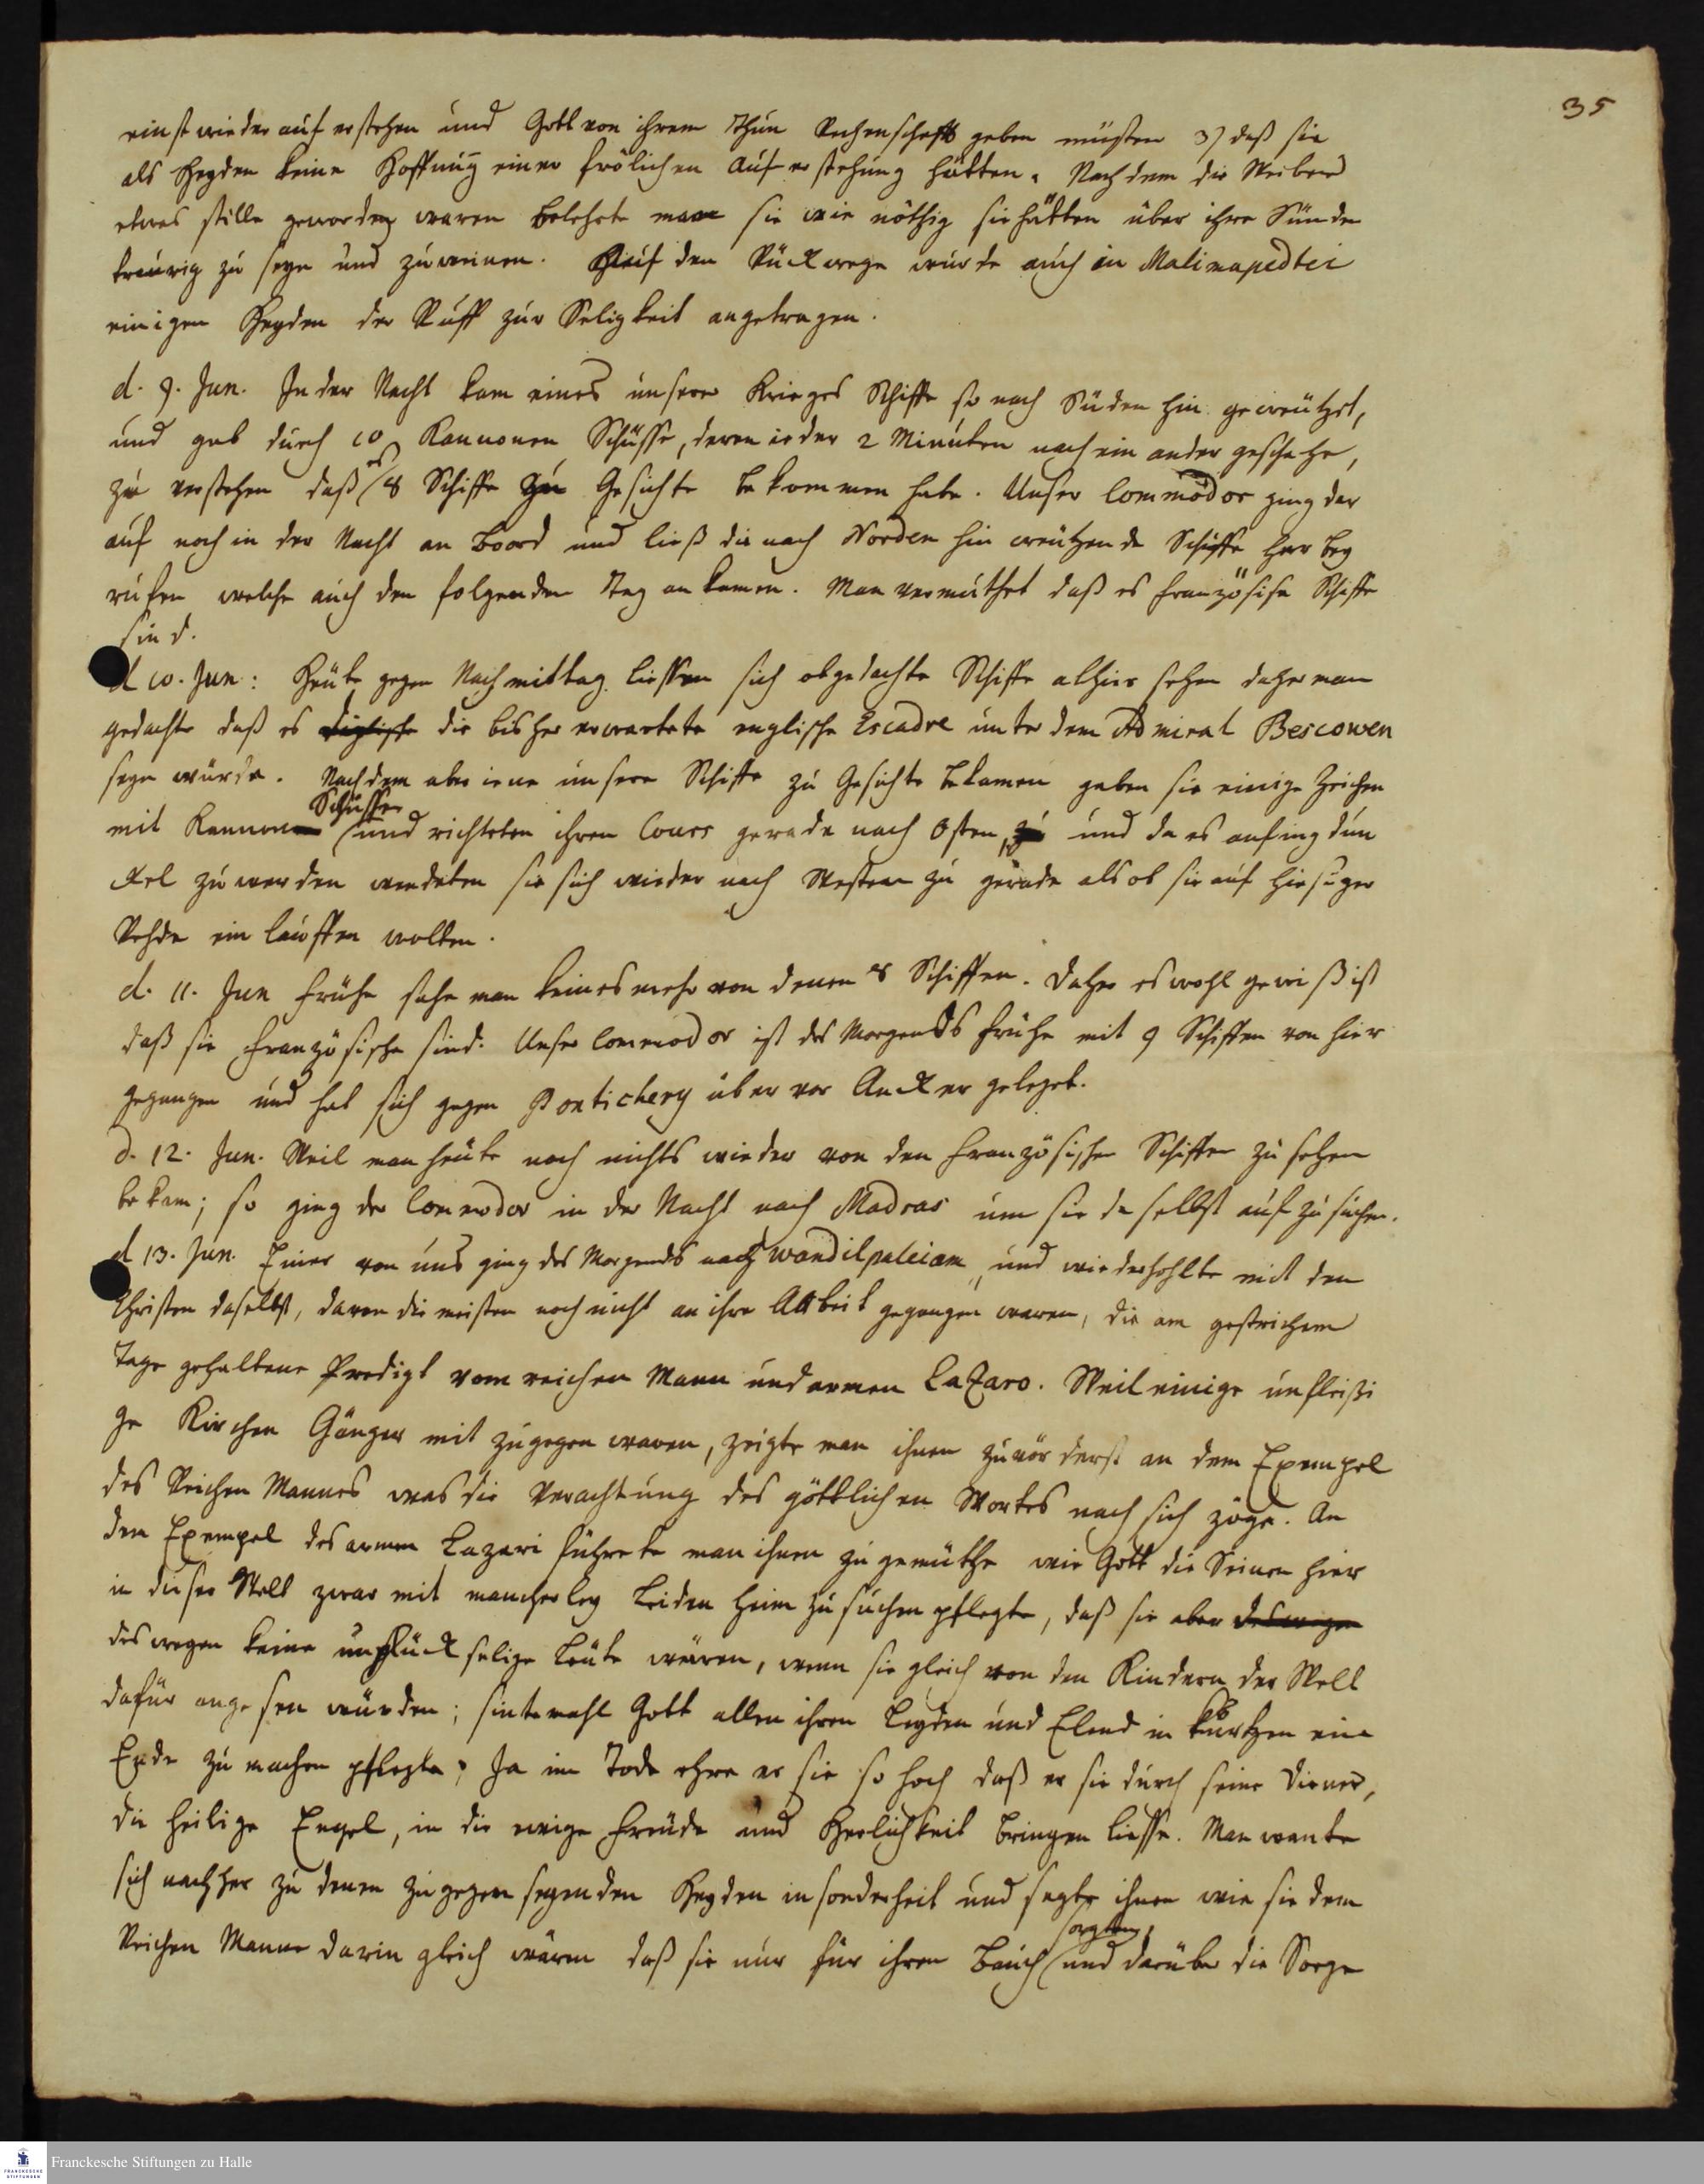 35
einst wieder auf erstehen und Gott von ihrem Thun Rechenschafft geben müsten 3) daß sie
als Heyden keine Hoffnung einer frölichen Auf erstehung hätten. Nach dem die Weiber
etwas stille geworden waren belehrte man sie wie nöthig sie hätten über ihre Sünde
traurig zu seyn und zu weinen. Auf den Rückwege wurde auch in Malimapedtei
einigen Heyden der Ruff zur Seligkeit angetragen.
d. 9. Jun. In der Nacht kam eines unserer Krieges Schiffe so nach Süden hin gecreutzet,
und gab durch 10 Kannonen Schüsse, deren ieder 2 Minuten nach ein ander geschahe,
zu verstehen daß es 8 Schiffe zu Gesichte bekommen habe. Unser Commodor ging dar
auf noch in der Nacht an Boord und ließ die nach Norden hin creutzende Schiffe herbey
rufen welche auch den folgenden Tag an kamen. Man vermuthet daß es französise Schiffe
sind.
d 10. Jun: Heute gegen Nachmittag liessen sich obgedachte Schiffe alhier sehen daher man
gedachte daß es die bisher erwartete englische Escadre unter dem Admiral Bescowen
seyn würde. Nachdem aber iene unsere Schiffe zu Gesichte bekamen gaben sie einige Zeichen
mit Kannonen Schüssen und richteten ihren Cours gerade nach Osten, und da es anfing dun
ckel zu werden wendeten sie sich wieder nach Westen zu gerade als ob sie auf hiesiger
Rehde ein lauffen wolten.
d. 11. Jun frühe sahe man keines mehr von denen 8 Schiffen. Daher es wohl gewiß ist
daß sie französische sind. Unser Commodor ist des Morgends frühe mit 9 Schiffen von hier
gegangen und hat sich gegen Pontichery über vor Ancker geleget.
d. 12. Jun. Weil man heute noch nichts wieder von den französischen Schiffen zu sehen
bekam; so ging der Commodor in der Nacht nach Madras um sie daselbst auf zu suchen.
d 13. Jun. Einer von uns ging des Morgends nach wandilpaleiam, und wiederhohlte mit den
Christen daselbst, davon die meisten noch nicht an ihre Arbeit gegangen waren, die am gestrichem
Tage gehaltene Predigt vom reichen Mann und armen Lazaro. Weil einige unfleißi
ge Kirchen Gänger mit zugegen waren, zeigte man ihnen zuvörderst an dem Exempel
des Reichen Mannes was die Verachtung des göttlichen Wortes nach sich zöge. An
dem Exempel des armen Lazari führete man ihnen zu gemüthe wie Gott die Seinen hier
in dieser Welt zwar mit mancherley Leiden heim zu suchen pflegte, daß sie aber deswegen
deswegen keine unglückselige Leute wären, wenn sie gleich von den Kindern der Welt
dafür angesen würden; sintemahl Gott allen ihren Leyden und Elend in kurtzen ein
Ende zu machen pflegte; Ja im Tode ehre er sie so hoch daß er sie durch seine Diener,
die heilige Engel, in die ewige Freude und Herlichkeit bringen liesse. Man wante
sich nachher zu denen zugegen seyenden Heyden insonderheit und sagte ihnen wie sie dem
Reichen Manne darin gleich wären daß sie nur für ihren Bauch sorgten, und darüber die Sorge
Franckesche Stiftungen zu Halle